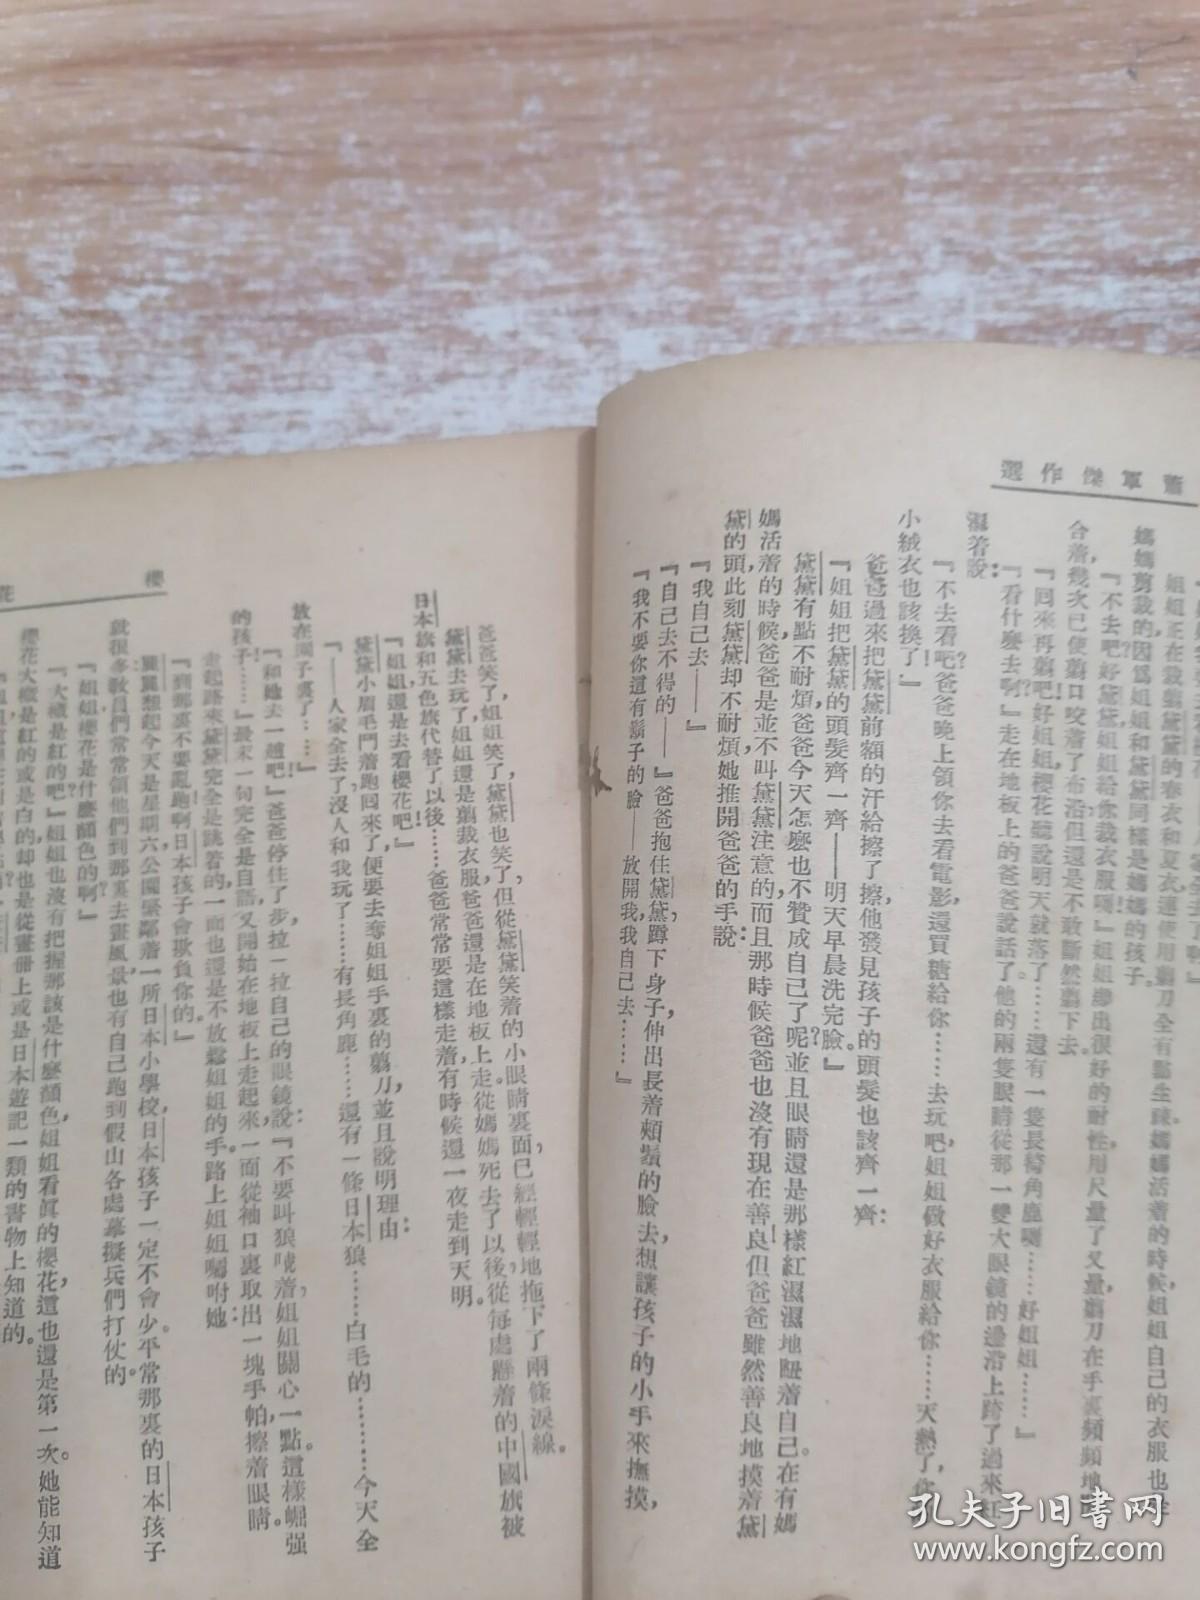 蕭軍傑作選
姐姐正在裁翦黛黛的春衣和夏衣連使用翦刀全有點生疎媽媽活着的時候姐姐自己的衣服也是
媽媽剪裁的因爲姐姐和黛黛同樣是媽媽的孩子。
『不去吧好黛黛姐姐給你裁衣服啊』姐姐
合着幾次已使翦口咬着了布沿但還是不敢斷然翦下去。
『回來再翦吧！好姐姐櫻花聽說明天就落了……還有一隻長犄角鹿啊……好姐姐……』
『看什麽去啊？』走在地板上的爸爸說話了他的兩隻眼睛從那一雙大眼鏡的邊沿上跨了過來
濕着說：
『不去看吧？爸爸晚上領你去看電影，還買糖給你……去玩吧，姐姐做好衣服給你……天熱了，你
小絨衣也該換了！』
爸爸過來把黛黛前額的汗給擦了擦，他發見孩子的頭髮也該齊一齊：
『姐姐把黛黛的頭髮齊一齊——明天早晨洗完臉。』
黛黛有點不耐煩，爸爸今天怎麽也不贊成自己了呢？並且眼睛還是那樣紅濕濕地瞅着自己。在有媽
媽活着的時候，爸爸是並不叫黛黛注意的，而且那時候爸爸也沒有現在善良！但爸爸雖然善良地摸着黛
黛的頭，此刻黛黛却不耐煩，她推開爸爸的手說：
『我自己去——』
『自己去不得的——』爸爸抱住黛黛，蹲下身子，伸出長着頰鬚的臉去，想讓孩子的小手來撫摸，
『我不要你這有鬍子的臉——放開我，我自己去……』
櫻花
爸爸笑了，姐姐笑了，黛黛也笑了，但從黛黛笑着的小眼睛裏面已經輕輕地拖下了兩條淚線。
黛黛去玩了，姐姐還是翦裁衣服，爸爸還是在地板上走。從媽媽死去了以後，從每處懸着的中國旗被
日本旗和五色旗代替了以後……爸爸常常要這樣走着，有時候還一夜走到天明。
『姐姐還是去看櫻花吧！』
黛黛小眉毛鬥着跑回來了，便要去奪姐姐手裏的翦刀，並且說明理由：
『——人家全去了，沒人和我玩了……有長角鹿……還有一條日本狼……白毛的……今天全
放在園子裏了……』
『和她去一趟吧！』爸爸停住了步，拉一拉自己的眼鏡說：『不要叫狼咬着，姐姐關心一點。這樣崛强
的孩子！……』最末一句完全是自語，又開始在地板上走起來，一面從袖口裏取出一塊手帕，擦着眼睛。
走起路來黛黛完全是跳着的，一面也還是不放鬆姐姐的手。路上姐姐囑咐她：
『到那裏不要亂跑啊！日本孩子會欺負你的。』
翼翼想起今天是星期六，公園緊鄰着一所日本小學校，日本孩子一定不會少。平常那裏的日本孩子
就很多，敎員們常常領他們到那裏去畫風景，也有自己跑到假山各處摹擬兵們打仗的。
『姐姐櫻花是什麽顏色的啊？』
『大概是紅的吧？』姐姐也沒有把握那該是什麽顏色，姐姐看眞的櫻花，這也還是第一次。她能知道
櫻花大概是紅的或是白的，却也是從畫冊上或是日本遊記一類的書物上知道的。
孔夫子旧書网
www.kongfz.com